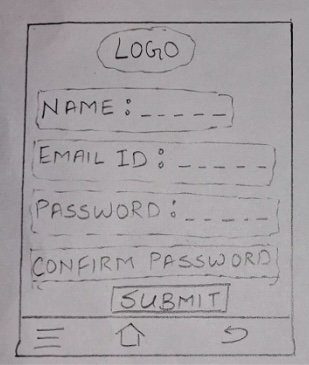 LOGO
NAME : _ _ _ _ _
EMAIL ID : _ _ _ _ _
PASSWORD : _ _ _ _ _
CONFIRM PASSWORD
SUBMIT